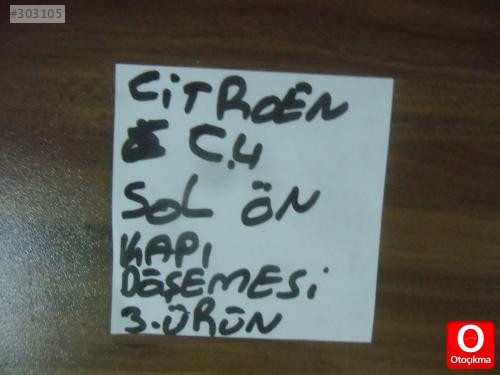 #303105
CiTROEN
C.4
SOL ÖN
KAPI
DÖŞEMESİ
3.ÜRÜN
Otoçıkma